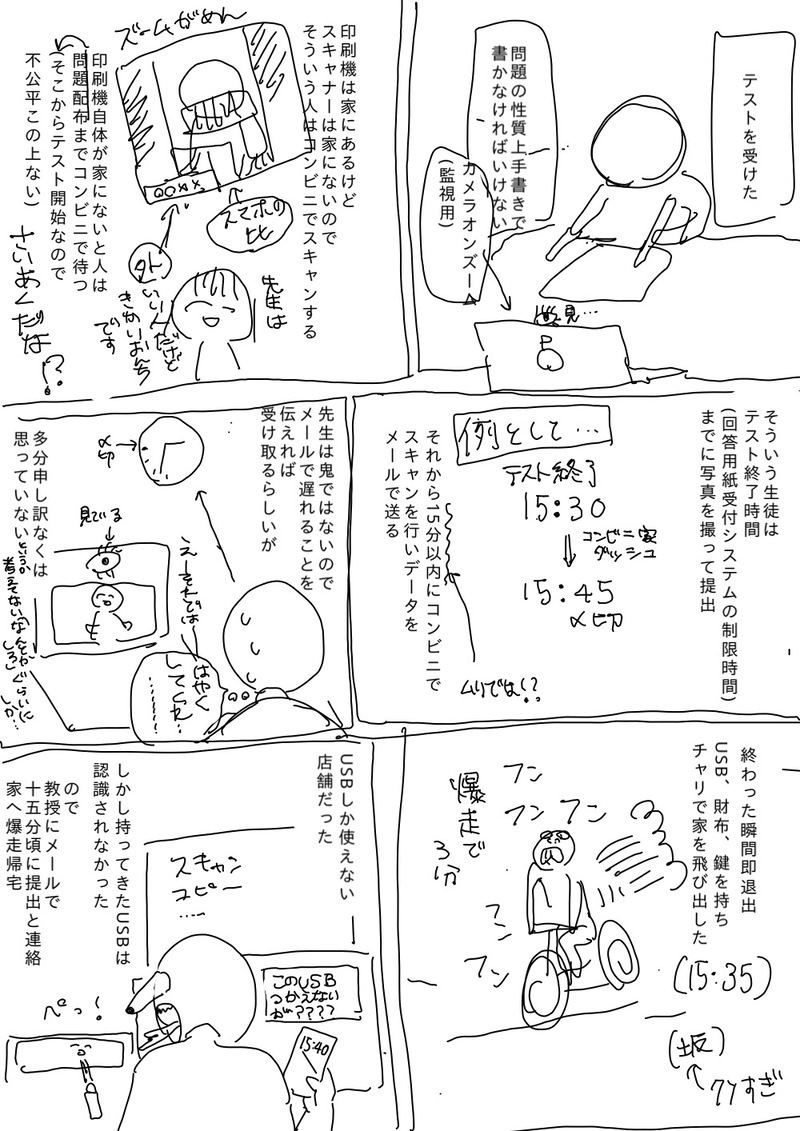 テストを受けた
問題の性質上手書きで
書かなければいけない
カメラオンズーム
(監視用)
印刷機は家にあるけど
スキャナーは家にないので
そういう人はコンビニでスキャンする
ズームがめん
スマホの
比
外
先生は
いい人だけど
きかいおんち
です
印刷機自体が家にないと人は
問題配布までコンビニで待つ
(そこからテスト開始なので
不公平この上ない)
さいあくだな
!?
そういう生徒は
テスト終了時間
(回答用紙受付システムの制限時間)
までに写真を撮って提出
例として…
テスト終了
15:30
コンビニ
ダッシュ
15:45
〆切
それから15分以内にコンビニで
スキャンを行いデータを
メールで送る
ムリでは!?
先生は鬼ではないので
メールで遅れることを
伝えれば
受け取るらしいが
〆切
見ている
えーそれでは
はやく
してくれ
………
多分申し訳なくは
思っていない
終わった瞬間即退出
USB、財布、鍵を持ち
チャリで家を飛び出した
(15:35)
フン
フン フン
フン
フン
爆走で
3分
(坂)
クソすぎ
USBしか使えない
店舗だった
スキャン
コピー
……
しかし持ってきたUSBは
認識されなかった
ので
教授にメールで
十五分頃に提出と連絡
家へ爆走帰宅
このUSB
つかえない
が????
15:40
ペっ!